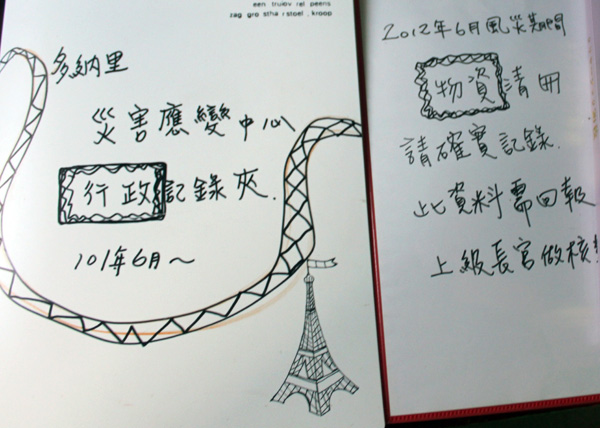 een truiov rel peens
zag gro stha r stoel , kroop
多納里
災害應變中心
行政記錄夾.
101年6月~
2012年6月風災期間
物資清冊
請確實記錄.
此資料需回報
上級長官做核!